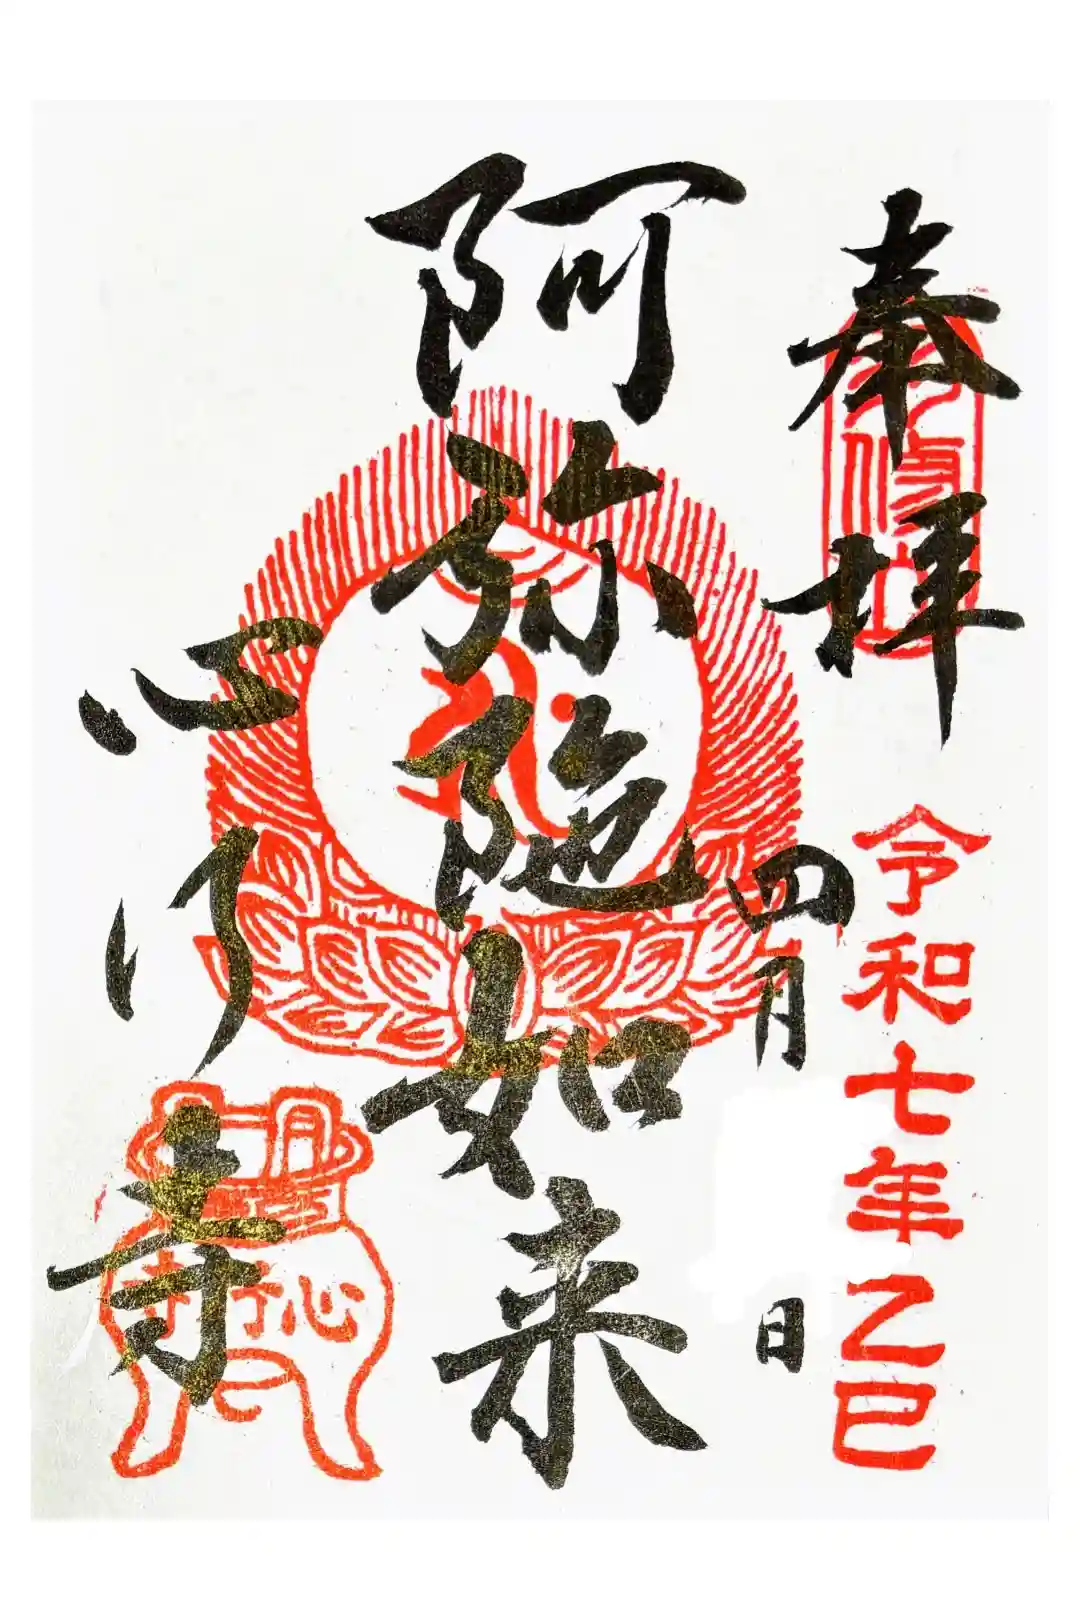 奉拝
令和七年乙巳
四月 日
阿弥陀如来
心行寺
心行寺